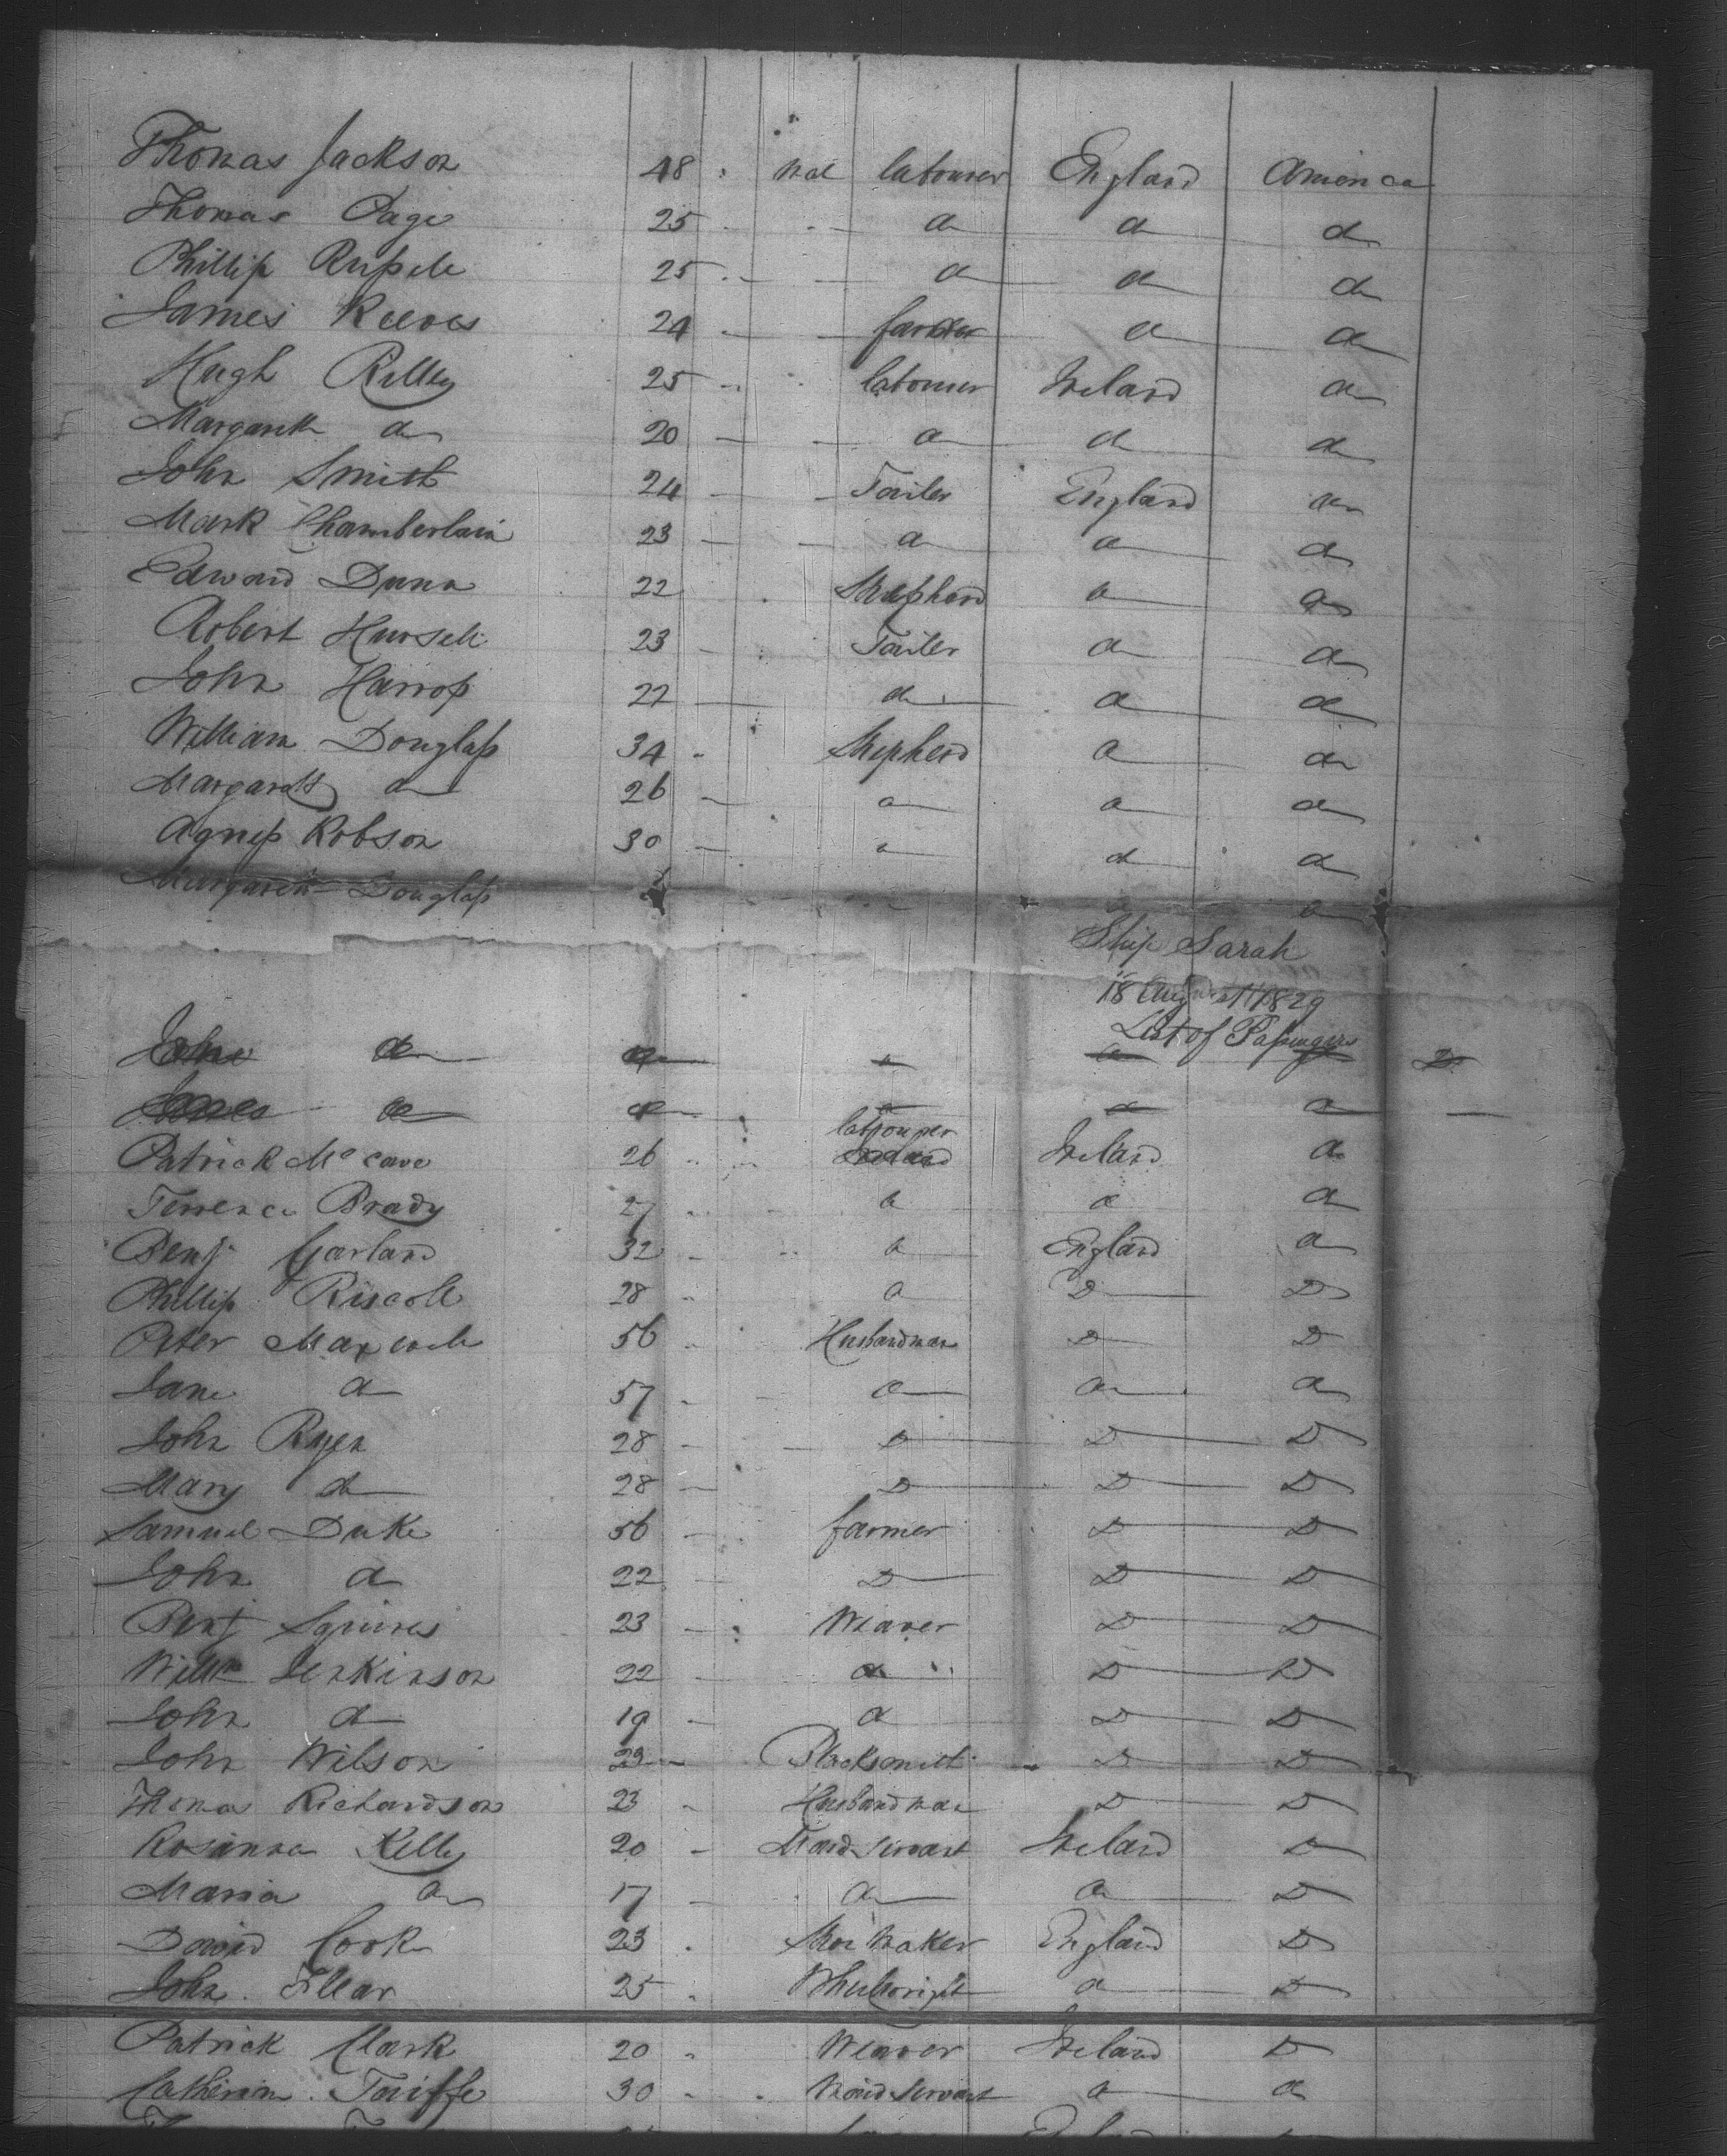 Thomas Jackson 48 Mal labourer England America
Thomas Page 25 do do do
Phillip Russell 25 do do do
James Reeves 24 farmer do do
Hugh Rilley 25 labourer Ireland do
Margareth do 20 do do do
John Smith 24 Tailer England do
Mark Chamberlain 23 do do do
Edward Dunn 22 Shepherd do do
Robert Hursell 23 Tailer do do
John Harrop 22 do do do
William Douglass 34 Shepherd do do
Margarett do 26 do do do
Agness Robson 30 do do do
Margareth Douglass do do
Ship Sarah
18 August 1829
List of Passengers
John do
do
labourer
Patrick McCave 26 Ireland do
Terrence Brady 27 do do do
Benj Garland 32 do England do
Phillip Riscoll 28 do D D
Peter Maxwell 56 Husbandman D D
Jane do 57 do do do
John Ryen 28 D D D
Mary do 28 D D D
Samuel Duke 56 farmer D D
John do 22 D D D
Benj Squires 23 Weaver D D
Willm Jenkinson 22 do D D
John do 19 do D D
John Wilson 23 Blacksmith D D
Thomas Richardson 23 Husbandman D D
Rosanna Kelly 20 Maid Servant Ireland D
Maria do 17 do do D
David Cook 23 Shoe Maker England D
John 25 Wheelwright do D
Patrick Clark 20 Weaver Ireland D
Catherine Taiffe 30 Maid Servant do do